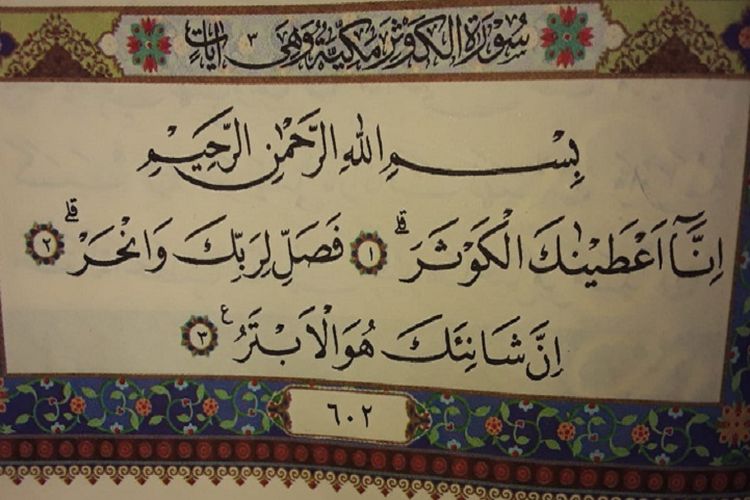 سُورَةُ الْكَوْثَرِ مَكِّيَّةٌ وَهِيَ ٣ اٰيَاتٍ
بِسْمِ اللهِ الرَّحْمٰنِ الرَّحِيْمِ
اِنَّٓا اَعْطَيْنٰكَ الْكَوْثَرَ ۗ ١ فَصَلِّ لِرَبِّكَ وَانْحَرْ ۗ ٢
اِنَّ شَانِئَكَ هُوَ الْاَبْتَرُ ع ٣
٦٠٢